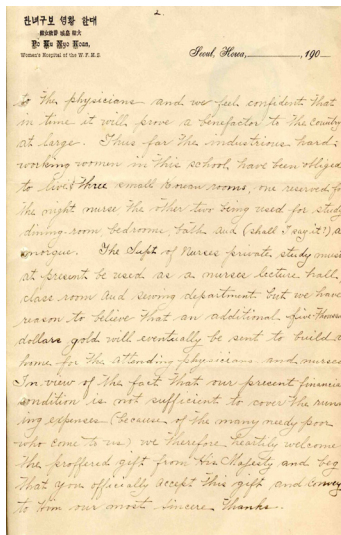 2.
한대 영황 보구녀관
Po Ku Nyo Koan,
Women's Hospital of the W. F. M. S.
Seoul, Korea, 190
to the physicians and we feel confident that
in time it will prove a benefactor to the Country
at large. Thus far the industrious hard-
working women in this school have been obliged
to live three small Korean rooms, one reserved for
the night nurse the other two being used for study
dining-room bedroom, bath and (shall I say it?) a
morgue. The Supt of Nurses private study must
at present be used as a nurses lecture hall,
class room and sewing department. but we have
reason to believe that an additional five thousand
dollars gold will eventually be sent to build a
home for the attending physicians and nurses
In view of the fact that our present financial
condition is not sufficient to cover the runn-
ing expenses (because of the many needy poor
who come to us) we therefore heartily welcome
the proffered gift from His Majesty and beg
that you officially accept this gift and convey
to him our most sincere thanks.